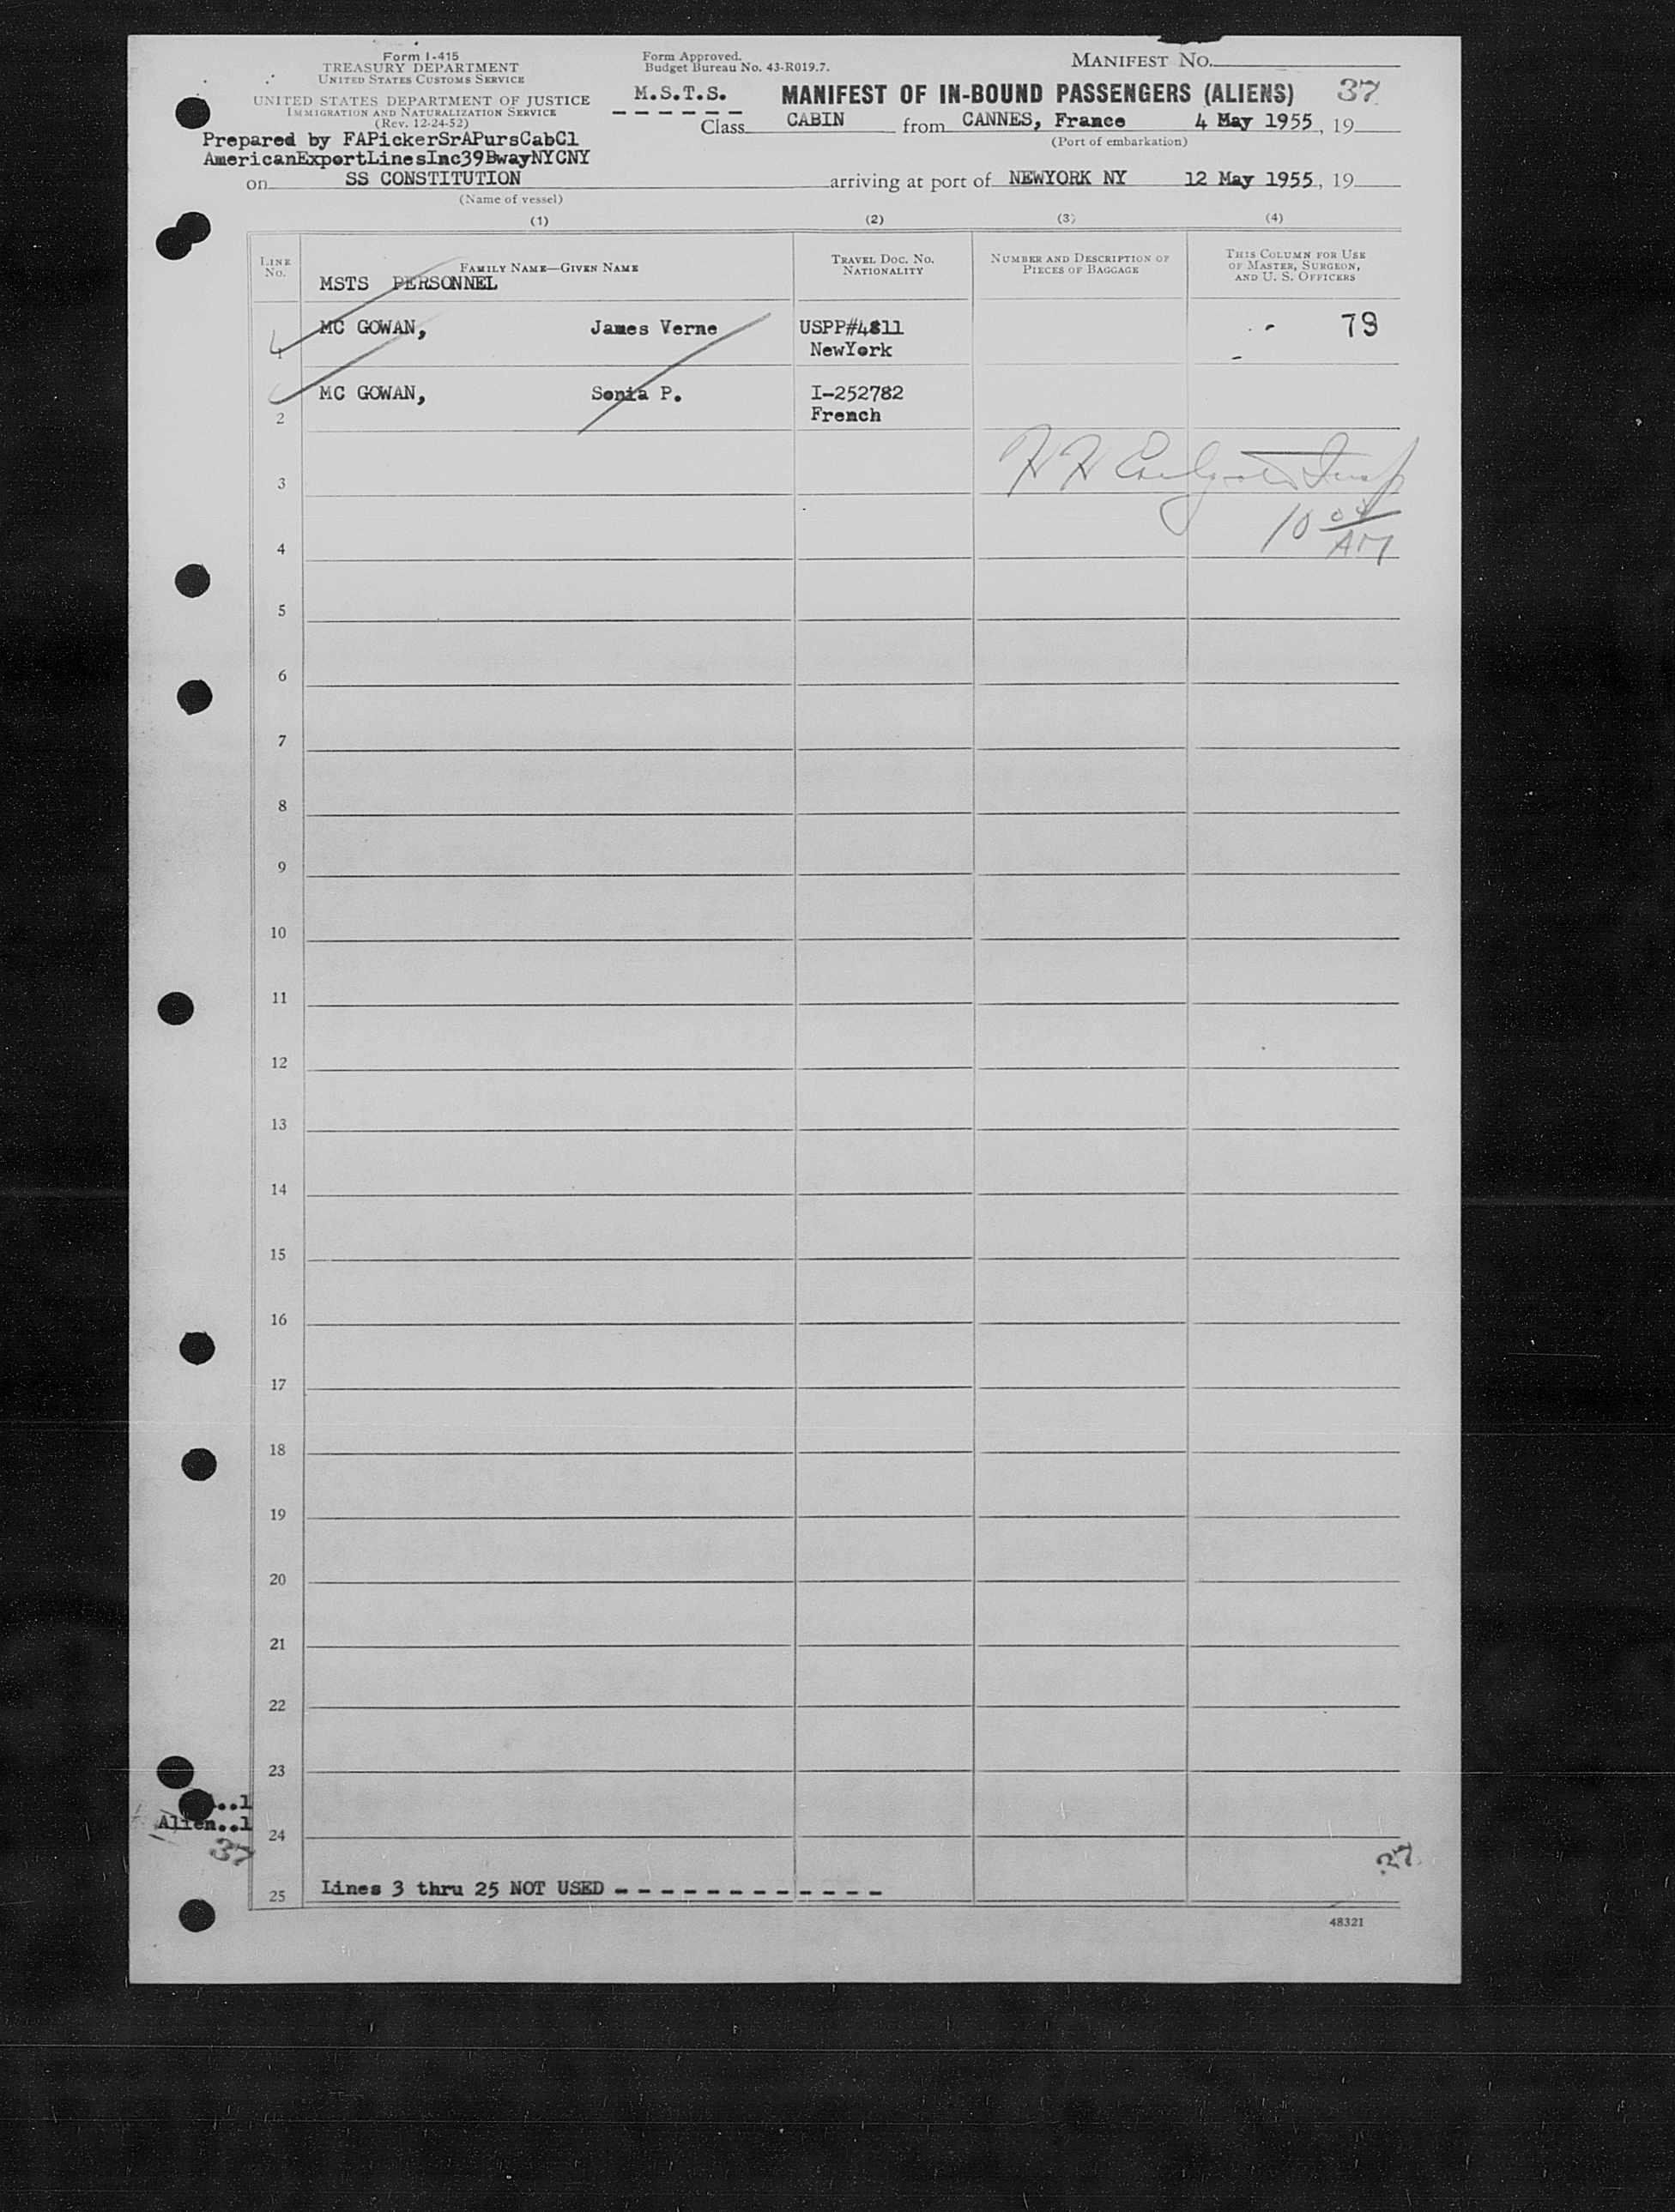 Form I-415
TREASURY DEPARTMENT
UNITED STATES CUSTOMS SERVICE
UNITED STATES DEPARTMENT OF JUSTICE
IMMIGRATION AND NATURALIZATION SERVICE
(Rev. 12-24-52)
Form Approved.
Budget Bureau No. 43-R019.7.
MANIFEST No.
M.S.T.S. MANIFEST OF IN-BOUND PASSENGERS (ALIENS) 37
Class CABIN from CANNES, France 4 May 1955, 19
(Port of embarkation)
Prepared by FAPickerSrAPursCabCl
AmericanExportLinesInc39BwayNYCNY
on SS CONSTITUTION arriving at port of NEWYORK NY 12 May 1955, 19
(Name of vessel)
(1) (2) (3) (4)
LINE No. FAMILY NAME—GIVEN NAME TRAVEL DOC. NO. NATIONALITY NUMBER AND DESCRIPTION OF PIECES OF BAGGAGE THIS COLUMN FOR USE OF MASTER, SURGEON, AND U. S. OFFICERS
MSTS PERSONNEL
1 MC GOWAN, James Verne USPP#4811 79
NewYork
2 MC GOWAN, Sonia P. I-252782
French
3
10 00 AM
4
5
6
7
8
9
10
11
12
13
14
15
16
17
18
19
20
21
22
23
..1
Alien..1
24
37 37
25 Lines 3 thru 25 NOT USED - - - - - - - - - - - -
48321